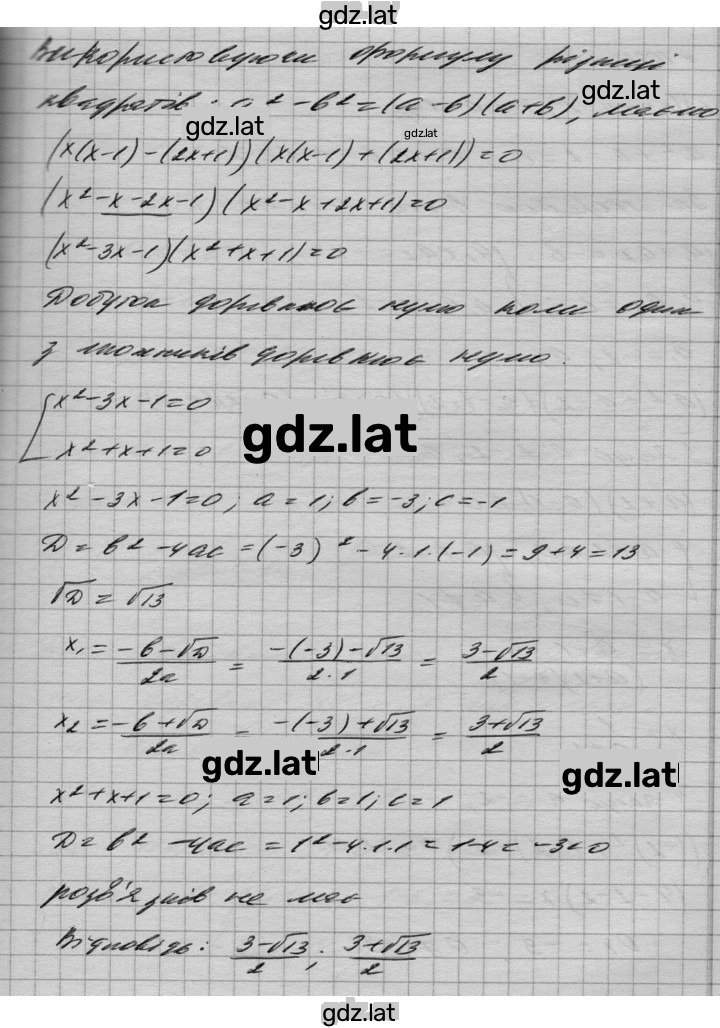 gdz.lat
Використовуючи формулу різниці
gdz.lat
квадратів: a² - b² = (a - b)(a + b), маємо
gdz.lat
gdz.lat
(x(x-1) - (2x+1))(x(x-1) + (2x+1)) = 0
(x² - x - 2x - 1)(x² - x + 2x + 1) = 0
(x² - 3x - 1)(x² + x + 1) = 0
Добуток дорівнює нулю коли один
з множників дорівнює нулю.
[ x² - 3x - 1 = 0
x² + x + 1 = 0
gdz.lat
x² - 3x - 1 = 0; a = 1; b = -3; c = -1
D = b² - 4ac = (-3)² - 4·1·(-1) = 9 + 4 = 13
√D = √13
x₁ = (-b - √D)/2a = (-(-3) - √13)/(2·1) = (3 - √13)/2
x₂ = (-b + √D)/2a = (-(-3) + √13)/(2·1) = (3 + √13)/2
gdz.lat
gdz.lat
x² + x + 1 = 0; a = 1; b = 1; c = 1
D = b² - 4ac = 1² - 4·1·1 = 1 - 4 = -3 < 0
розв'язків не має
Відповідь: (3 - √13)/2; (3 + √13)/2
gdz.lat